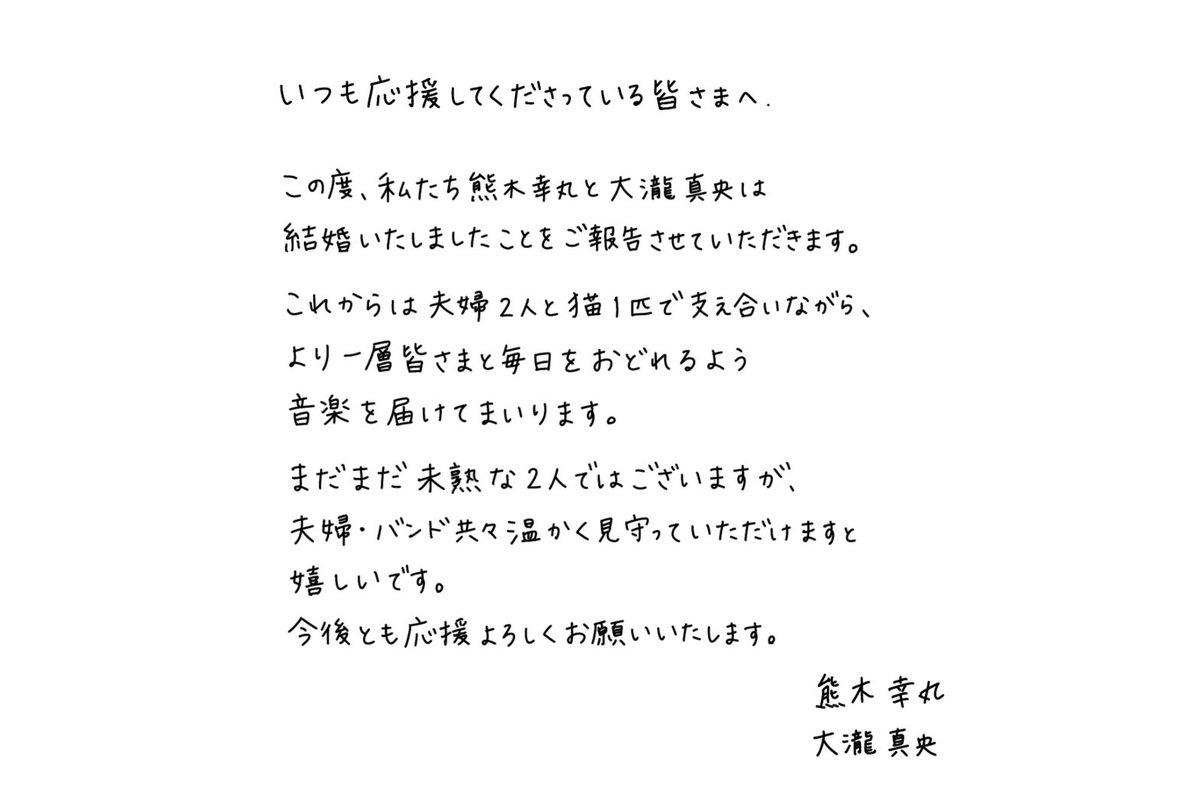 いつも応援してくださっている皆さまへ.
この度、私たち熊木幸丸と大瀧真央は
結婚いたしましたことをご報告させていただきます。
これからは夫婦2人と猫1匹で支え合いながら、
より一層皆さまと毎日をおどれるよう
音楽を届けてまいります。
まだまだ未熟な2人ではございますが、
夫婦・バンド共々温かく見守っていただけますと
嬉しいです。
今後とも応援よろしくお願いいたします。
熊木幸丸
大瀧真央